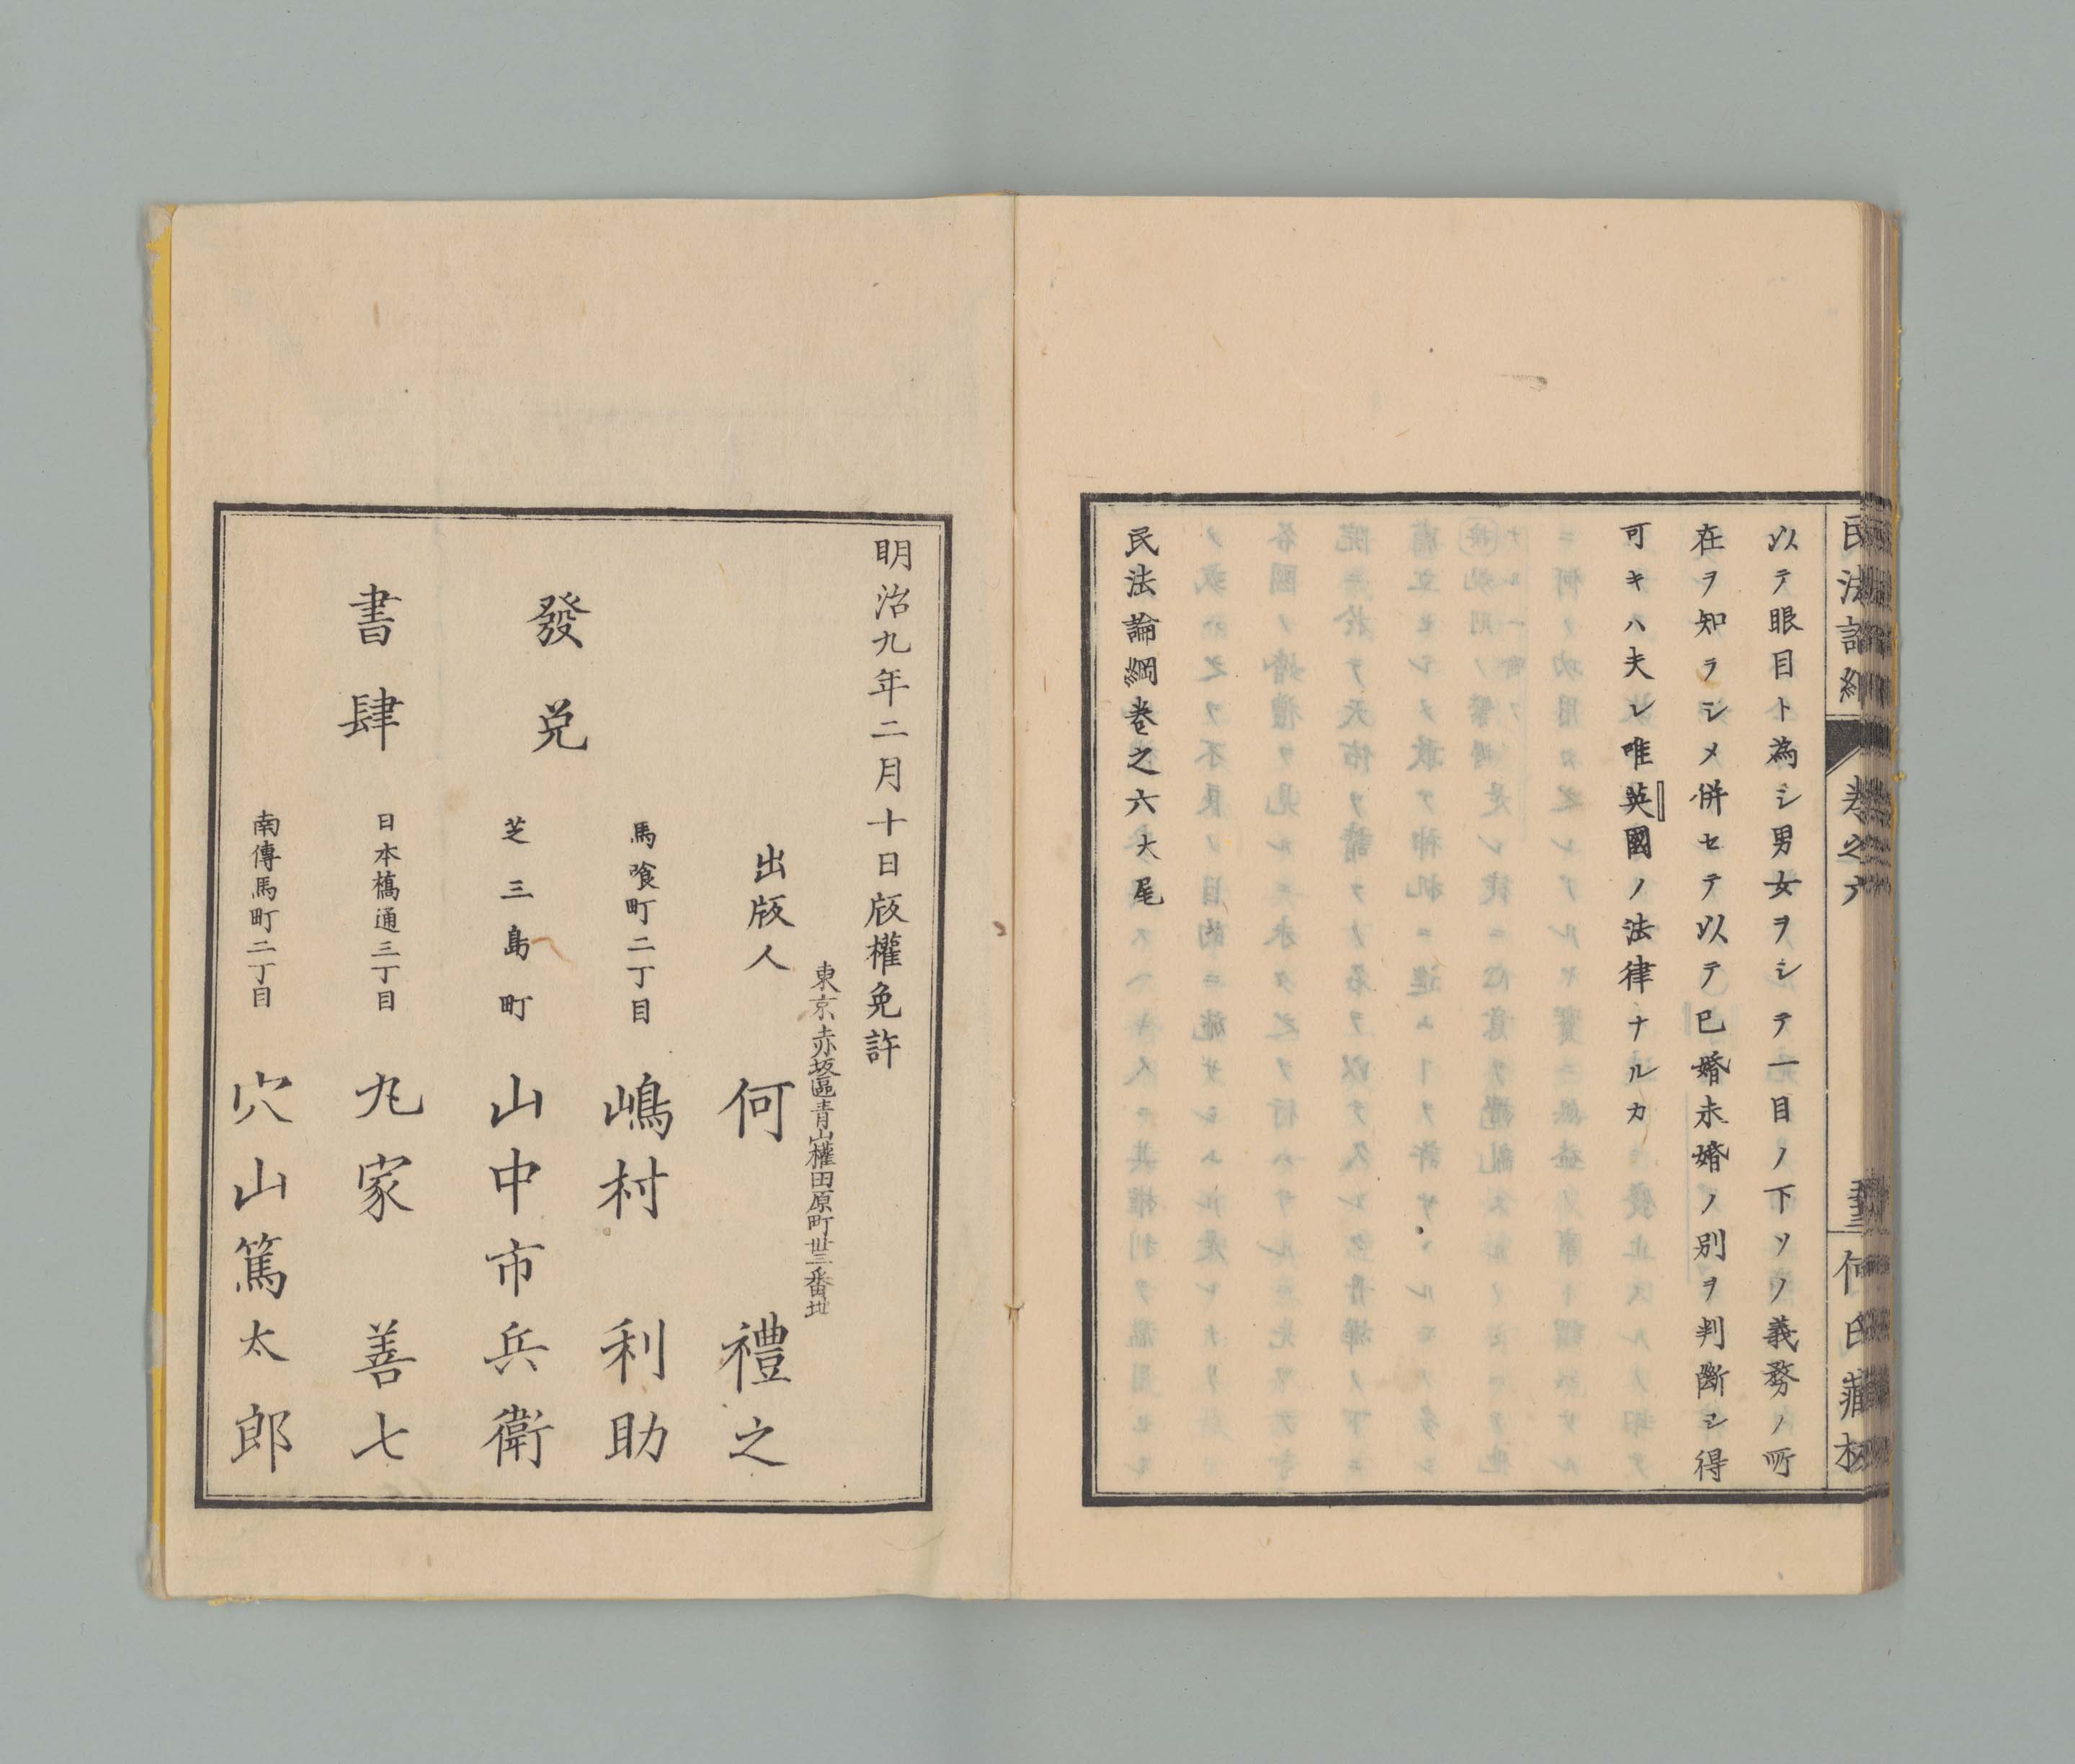 以テ眼目ト為シ男女ヲシテ一目ノ下ソノ義務ノ所
在ヲ知ラシメ併セテ以テ已婚未婚ノ別ヲ判斷シ得
可キハ夫レ唯英國ノ法律ナルカ
民法論綱卷之六大尾
明治九年二月十日版權免許
東京赤坂區青山權田原町丗三番地
出版人 何 禮之
發兌
馬喰町二丁目 嶋村 利助
芝三島町 山中市兵衛
書肆
日本橋通三丁目 丸家 善七
南傳馬町二丁目 穴山篤太郎